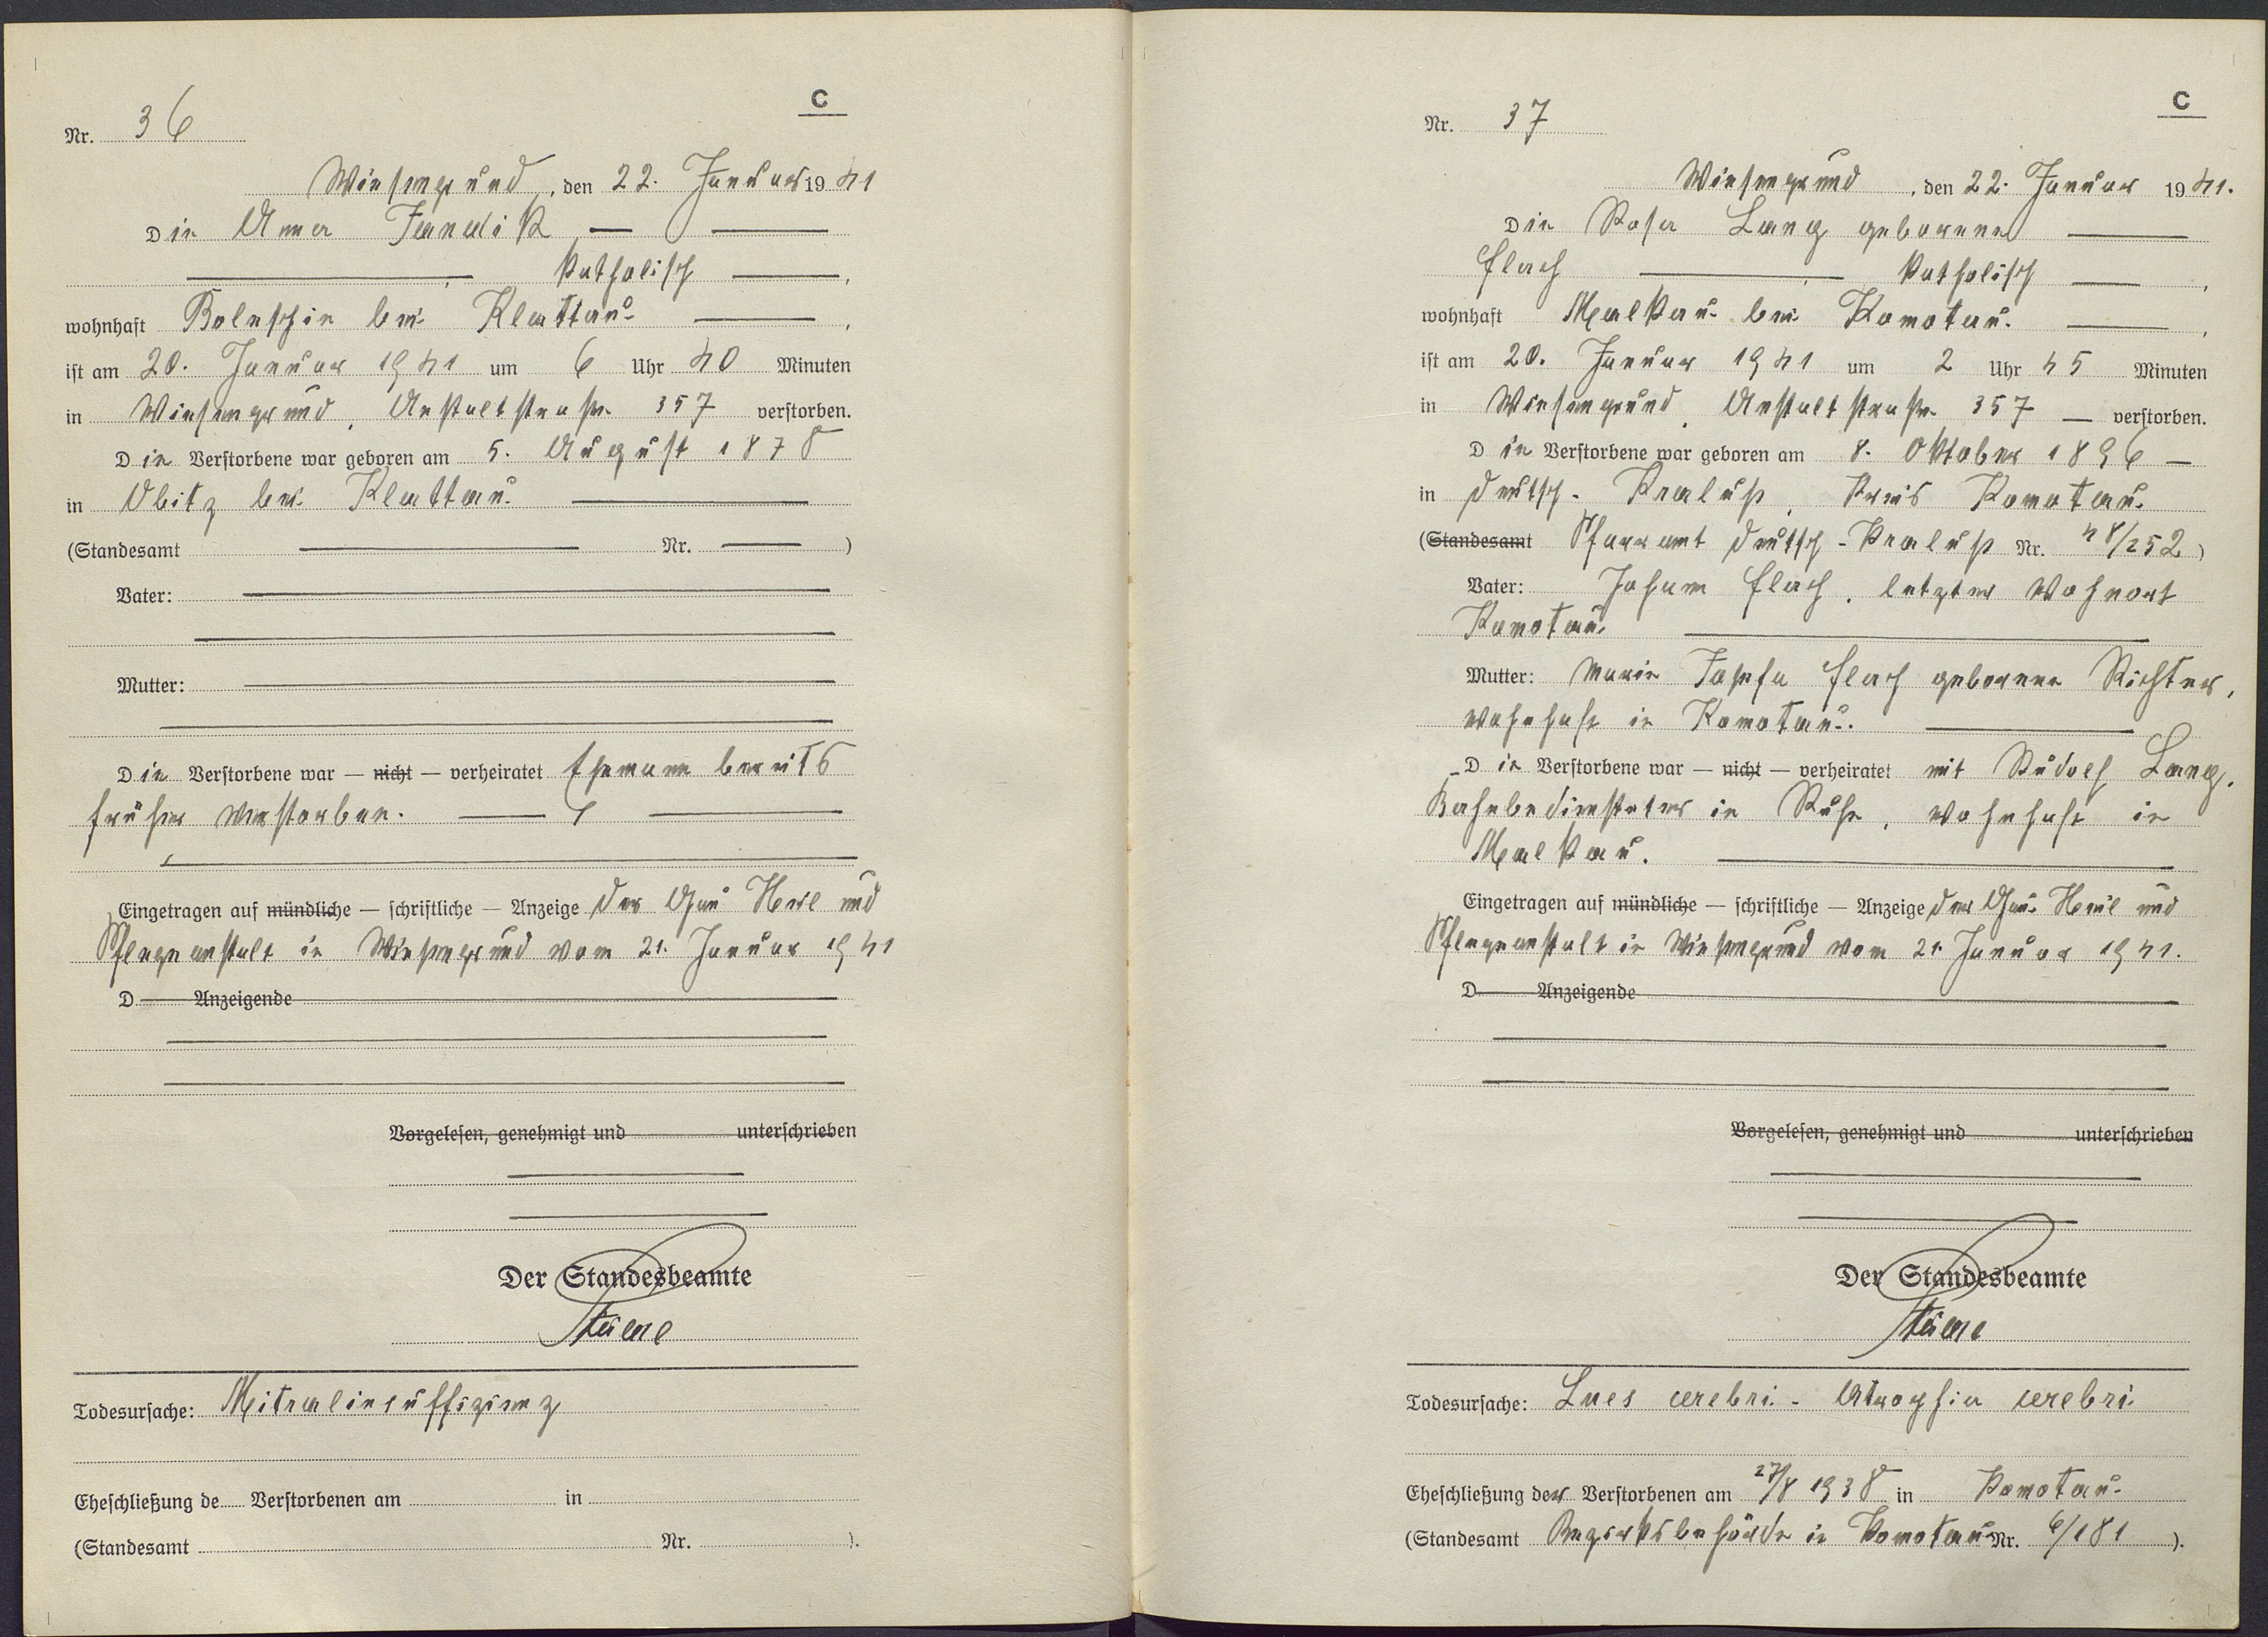 C
Nr. 36
Wiesengrund, den 22. Januar 1941
Die Anna Jandik
katholisch
wohnhaft Boleschin bei Klattau
ist am 20. Januar 1941 um 6 Uhr 40 Minuten
in Wiesengrund, Anstaltstraße 357 verstorben.
Die Verstorbene war geboren am 5. August 1878
in Obitz bei Klattau.
(Standesamt Nr. )
Vater:
Mutter:
Die Verstorbene war — nicht — verheiratet Ehemann bereits
früher verstorben.
Eingetragen auf mündliche — schriftliche — Anzeige der Gau Heil und
Pflegeanstalt in Wiesengrund vom 21. Januar 1941
D Anzeigende
Vorgelesen, genehmigt und unterschrieben
Der Standesbeamte
Todesursache: Mitralinsuffizienz
Eheschließung de Verstorbenen am in
(Standesamt Nr. ).
C
Nr. 37
Wiesengrund, den 22. Januar 1941.
Die Rosa Lang geborene
Flach, katholisch,
wohnhaft Malkau bei Komotau.
ist am 20. Januar 1941 um 2 Uhr 45 Minuten
in Wiesengrund, Anstaltstraße 357 — verstorben.
Die Verstorbene war geboren am 8. Oktober 1896 —
in Deutsch-Kralup, Kreis Komotau.
(Standesamt Pfarramt Deutsch-Kralup Nr. 48/252)
Vater: Johann Flach, letzter Wohnort
Komotau.
Mutter: Marie Josefa Flach geborene Richter,
wohnhaft in Komotau.
Die Verstorbene war — nicht — verheiratet mit Rudolf Lang,
Bahnbediensteter in Ruhe, wohnhaft in
Malkau.
Eingetragen auf mündliche — schriftliche — Anzeige der Gau-Heil und
Pflegeanstalt in Wiesengrund vom 21. Januar 1941.
D Anzeigende
Vorgelesen, genehmigt und unterschrieben
Der Standesbeamte
Todesursache: Lues cerebri - Atrophia cerebri
Eheschließung der Verstorbenen am 27/8 1938 in Komotau.
(Standesamt Bezirksbehörde in Komotau Nr. 6/181).